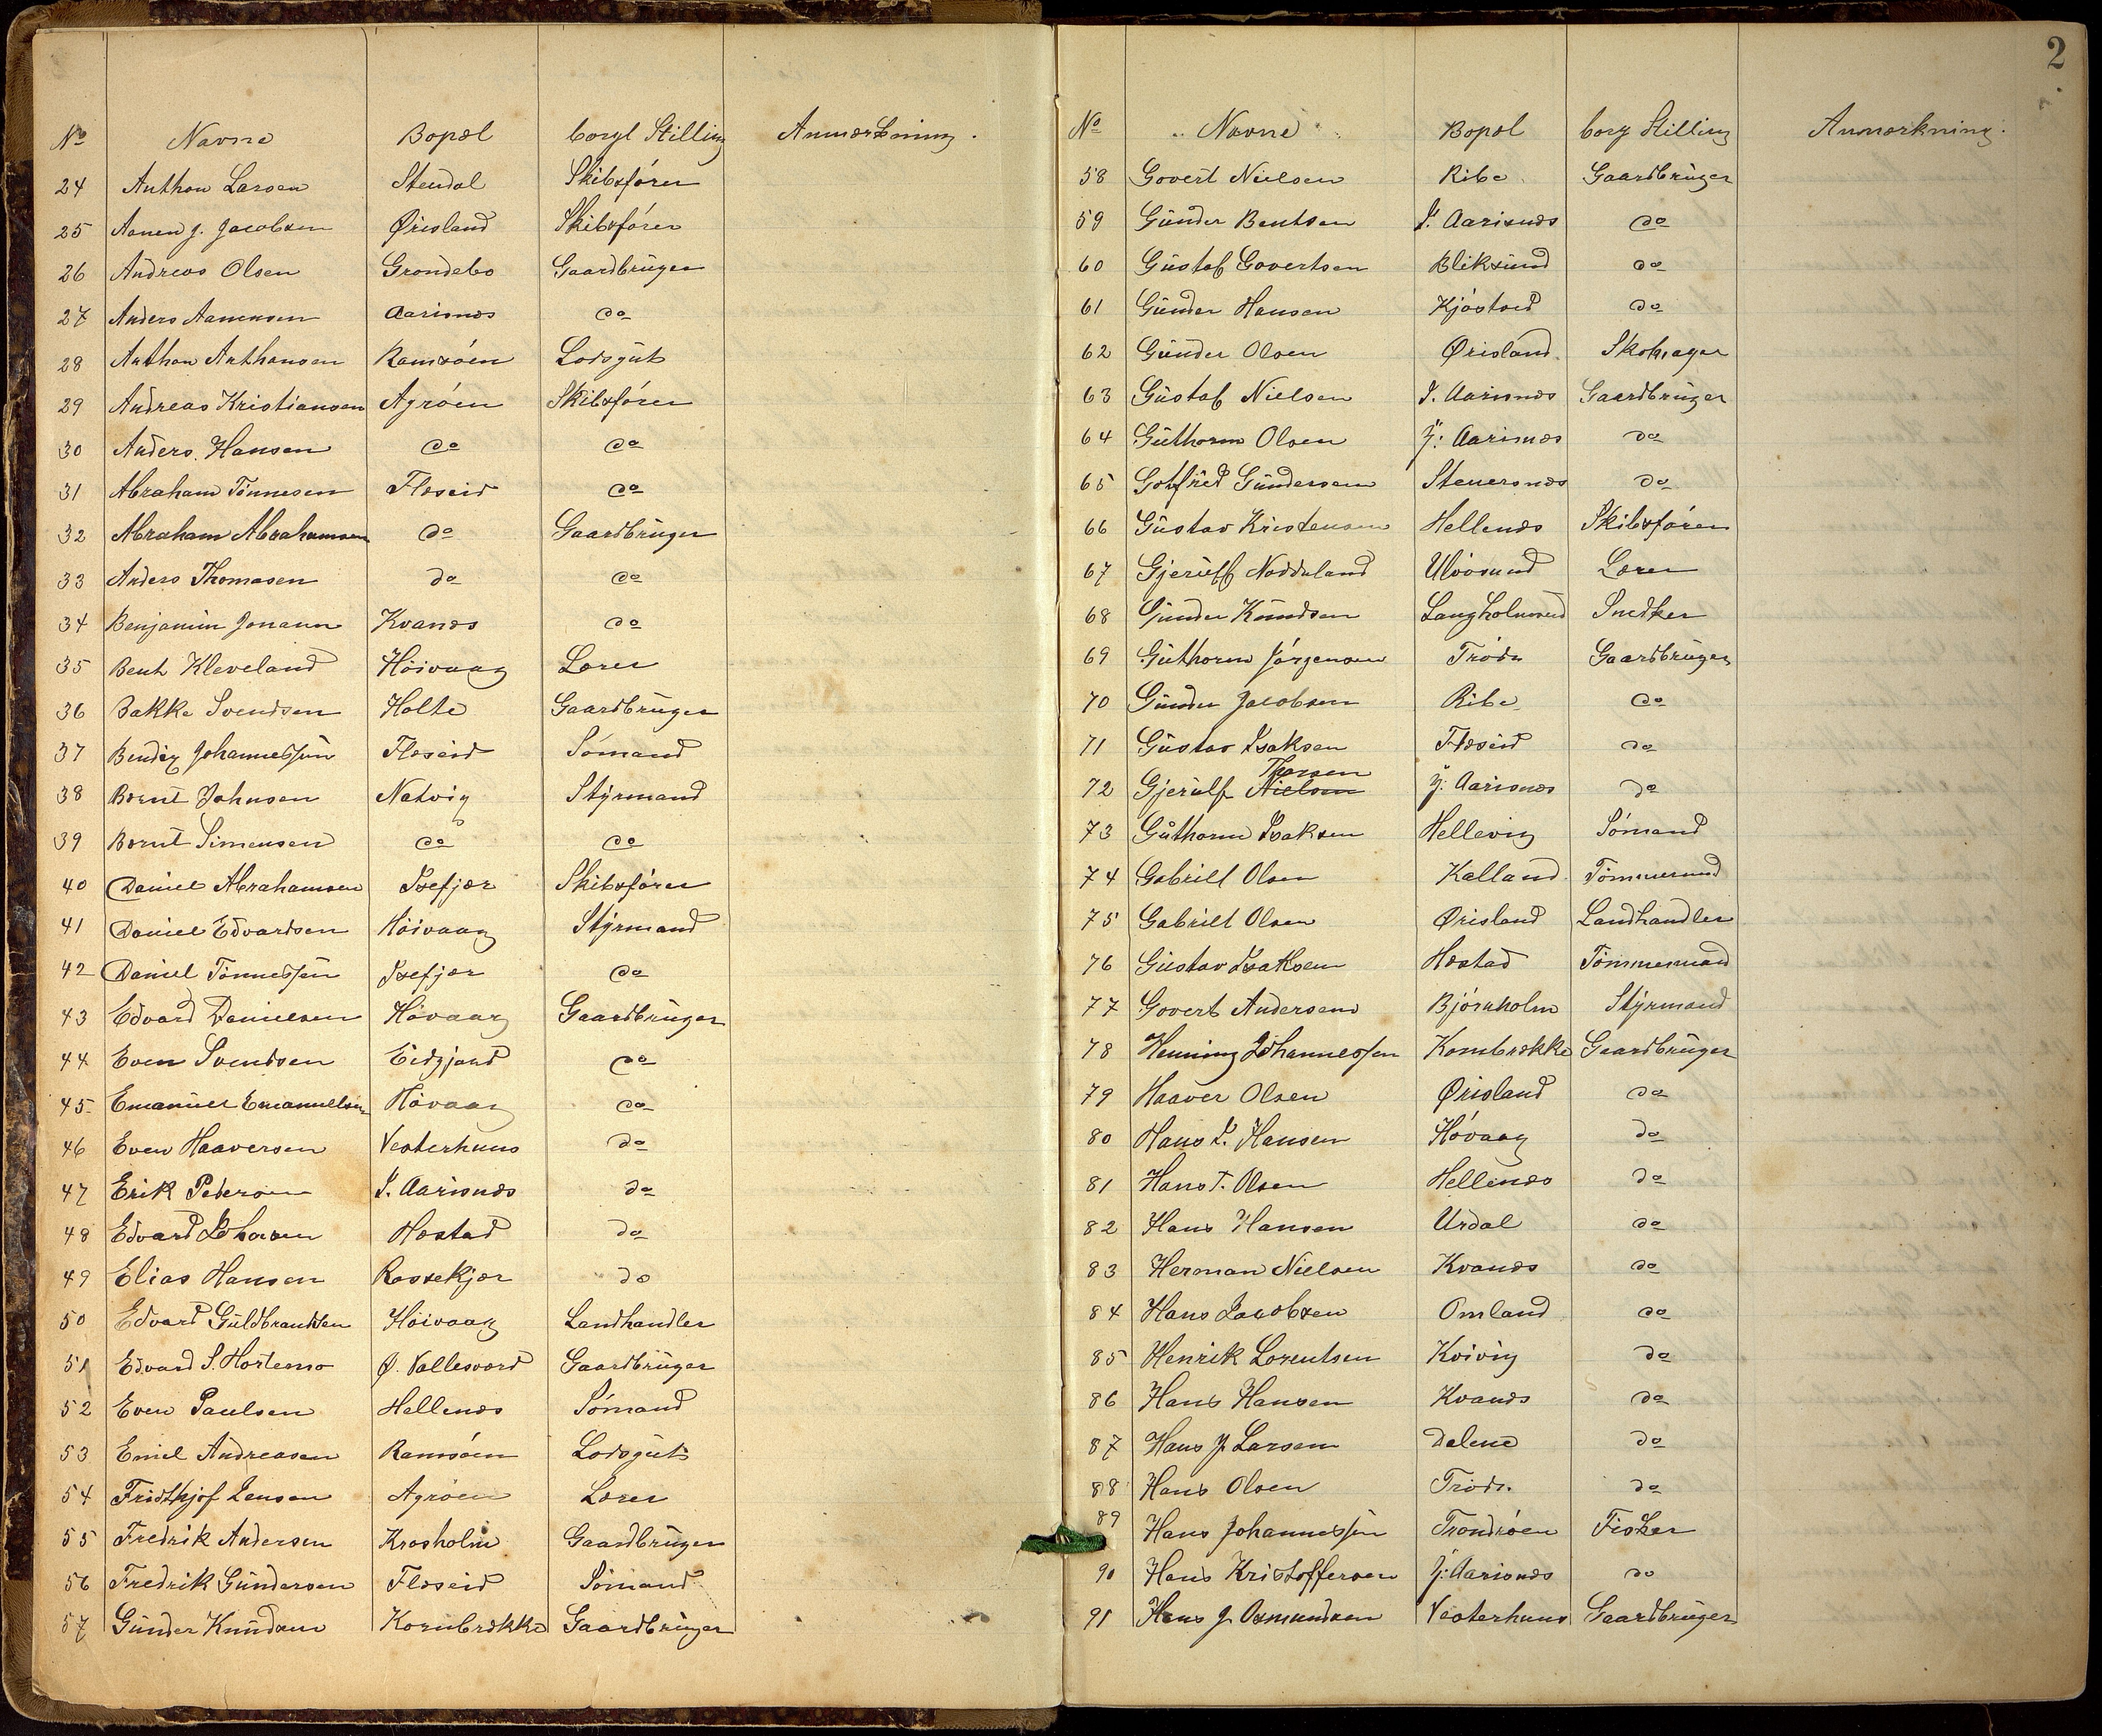 No Navne Bopæl borgl Stilling Anmærkning.
24 Anthon Larsen Stendal Skibsfører
25 Aanen J. Jacobsen Ørisland Skibsfører
26 Andreas Olsen Grondebo Gaardbruger
27 Anders Aanensen Aarisnæs do
28 Anthon Anthonsen Ramsöen Lodsgut
29 Andreas Kristiansen Agröen Skibsfører
30 Anders Hansen do do
31 Abraham Tönnesen Flæseid do
32 Abraham Abrahamsen do Gaardbruger
33 Anders Thomasen do do
34 Benjamin Jonassen Kvanæs do
35 Bent Kleveland Höivaag Lærer
36 Bakke Svendsen Holte Gaardbruger
37 Bendix Johannessen Flæseid Sömand
38 Bernt Johnsen Natvig Styrmand
39 Bernt Simensen do do
40 Daniel Abrahamsen Isefjær Skibsfører
41 Daniel Edvardsen Höivaag Styrmand
42 Daniel Tönnessen Isefjær do
43 Edvard Danielsen Hövaag Gaardbruger
44 Even Svendsen Eidjord do
45 Emanuel Emanuelsen Hövaag do
46 Even Haaversen Vesterhuus do
47 Erik Pedersen I. Aarisnæs do
48 Edvard Johnsen Hæstad do
49 Elias Hansen Rossekjær do
50 Edvard Guldbrandsen Höivaag Landhandler
51 Edvard S. Hortemo Ø. Vallesværd Gaardbruger
52 Even Paulsen Hellenæs Sömand
53 Emil Andreasen Ramsöen Lodsgut
54 Fridthjof Jensen Agröen Lærer
55 Fredrik Andersen Krosholm Gaardbruger
56 Fredrik Gundersen Flæseid Sömand
57 Gunder Knudsen Kornbrække Gaardbruger
2
No Navne Bopæl borg Stilling Anmærkning.
58 Govert Nielsen Ribe Gaardbruger
59 Gunder Bentsen I. Aarisnæs do
60 Gustaf Govertsen Bliksund do
61 Gunder Hansen Kjöstad do
62 Gunder Olsen Ørisland Skomager
63 Gustaf Nielsen I. Aarisnæs Gaardbruger
64 Guthorm Olsen Y. Aarisnæs do
65 Gotfred Gundersen Steuersnæs do
66 Gustav Kristensen Hellenæs Skibsfører
67 Gjeruff Noddeland Ulvösund Lærer
68 Gunder Knudsen Langholmsund Snedker
69 Guthorm Jörgensen Tröde Gaardbruger
70 Gunder Jacobsen Ribe do
71 Gustav Isaksen Flæseid do
Thorsen
72 Gjerulf Nielsen Y. Aarisnæs do
73 Guthorm Isaksen Hellevig Sömand
74 Gabriel Olsen Kalland Tömmermand
75 Gabriel Olsen Ørisland Landhandler
76 Gustav Isaksen Hæstad Tömmermand
77 Govert Andersen Björnholm Styrmand
78 Henning Johannessen Kornbrække Gaardbruger
79 Haaver Olsen Ørisland do
80 Hans I. Hansen Hövaag do
81 Hans T. Olsen Hellenæs do
82 Hans Hansen Urdal do
83 Herman Nielsen Kvanæs do
84 Hans Jacobsen Omland do
85 Henrik Lorentsen Kvivig do
86 Hans Hansen Kvanæs do
87 Hans J Larsen Dalene do
88 Hans Olsen Tröde do
89 Hans Johannessen Trondröen Fisker
90 Hans Kristoffersen Y. Aarisnæs do
91 Hans J. Osmundsen Vesterhuus Gaardbruger